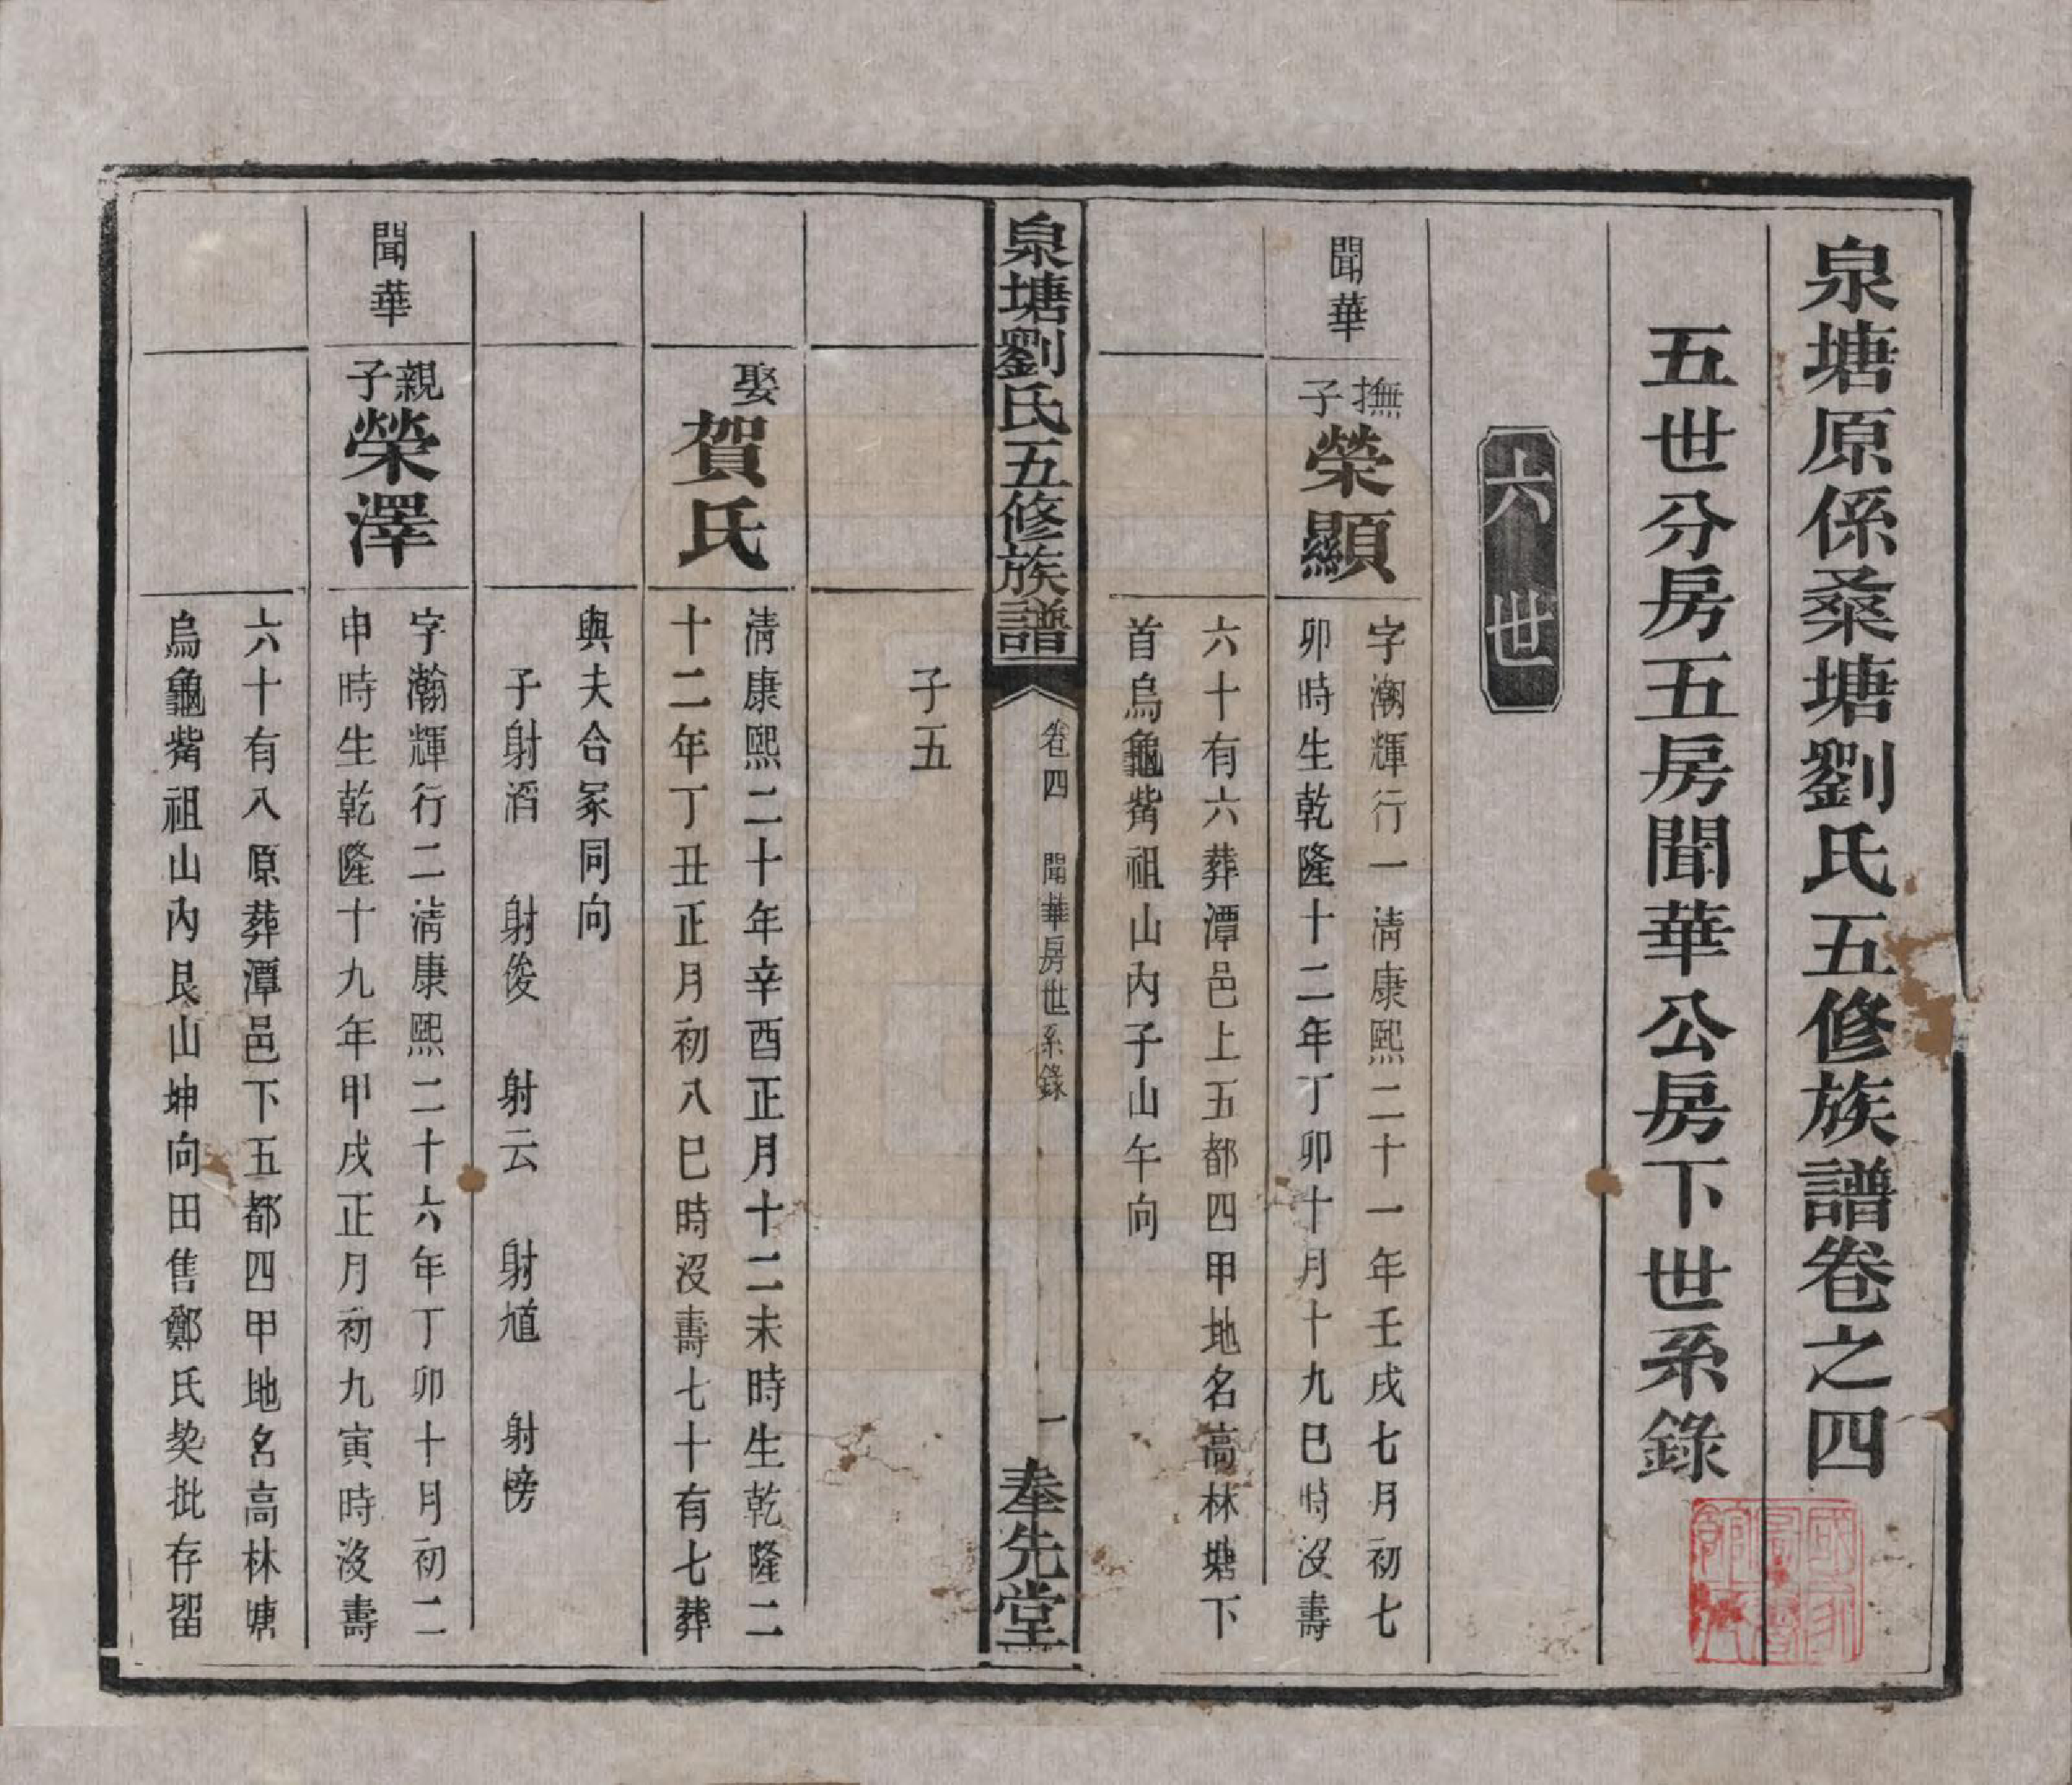 泉塘原係桑塘劉氏五修族譜卷之四
五世分房五房聞華公房下世系錄
六世
聞華
撫子
榮顯
字潮輝行一清康熙二十一年壬戌七月初七
卯時生乾隆十二年丁卯十月十九巳時沒壽
六十有六葬潭邑上五都四甲地名高林塘下
首烏龜觜祖山內子山午向
泉塘劉氏五修族譜
卷四
聞華房世系錄
一
奉先堂
子五
娶
賀氏
清康熙二十年辛酉正月十二未時生乾隆二
十二年丁丑正月初八巳時沒壽七十有七葬
與夫合冢同向
子射滔 射俊 射云 射馗 射榜
聞華
親子
榮澤
字瀚輝行二清康熙二十六年丁卯十月初二
申時生乾隆十九年甲戌正月初九寅時沒壽
六十有八原葬潭邑下五都四甲地名高林塘
烏龜觜祖山內艮山坤向田售鄭氏契批存留